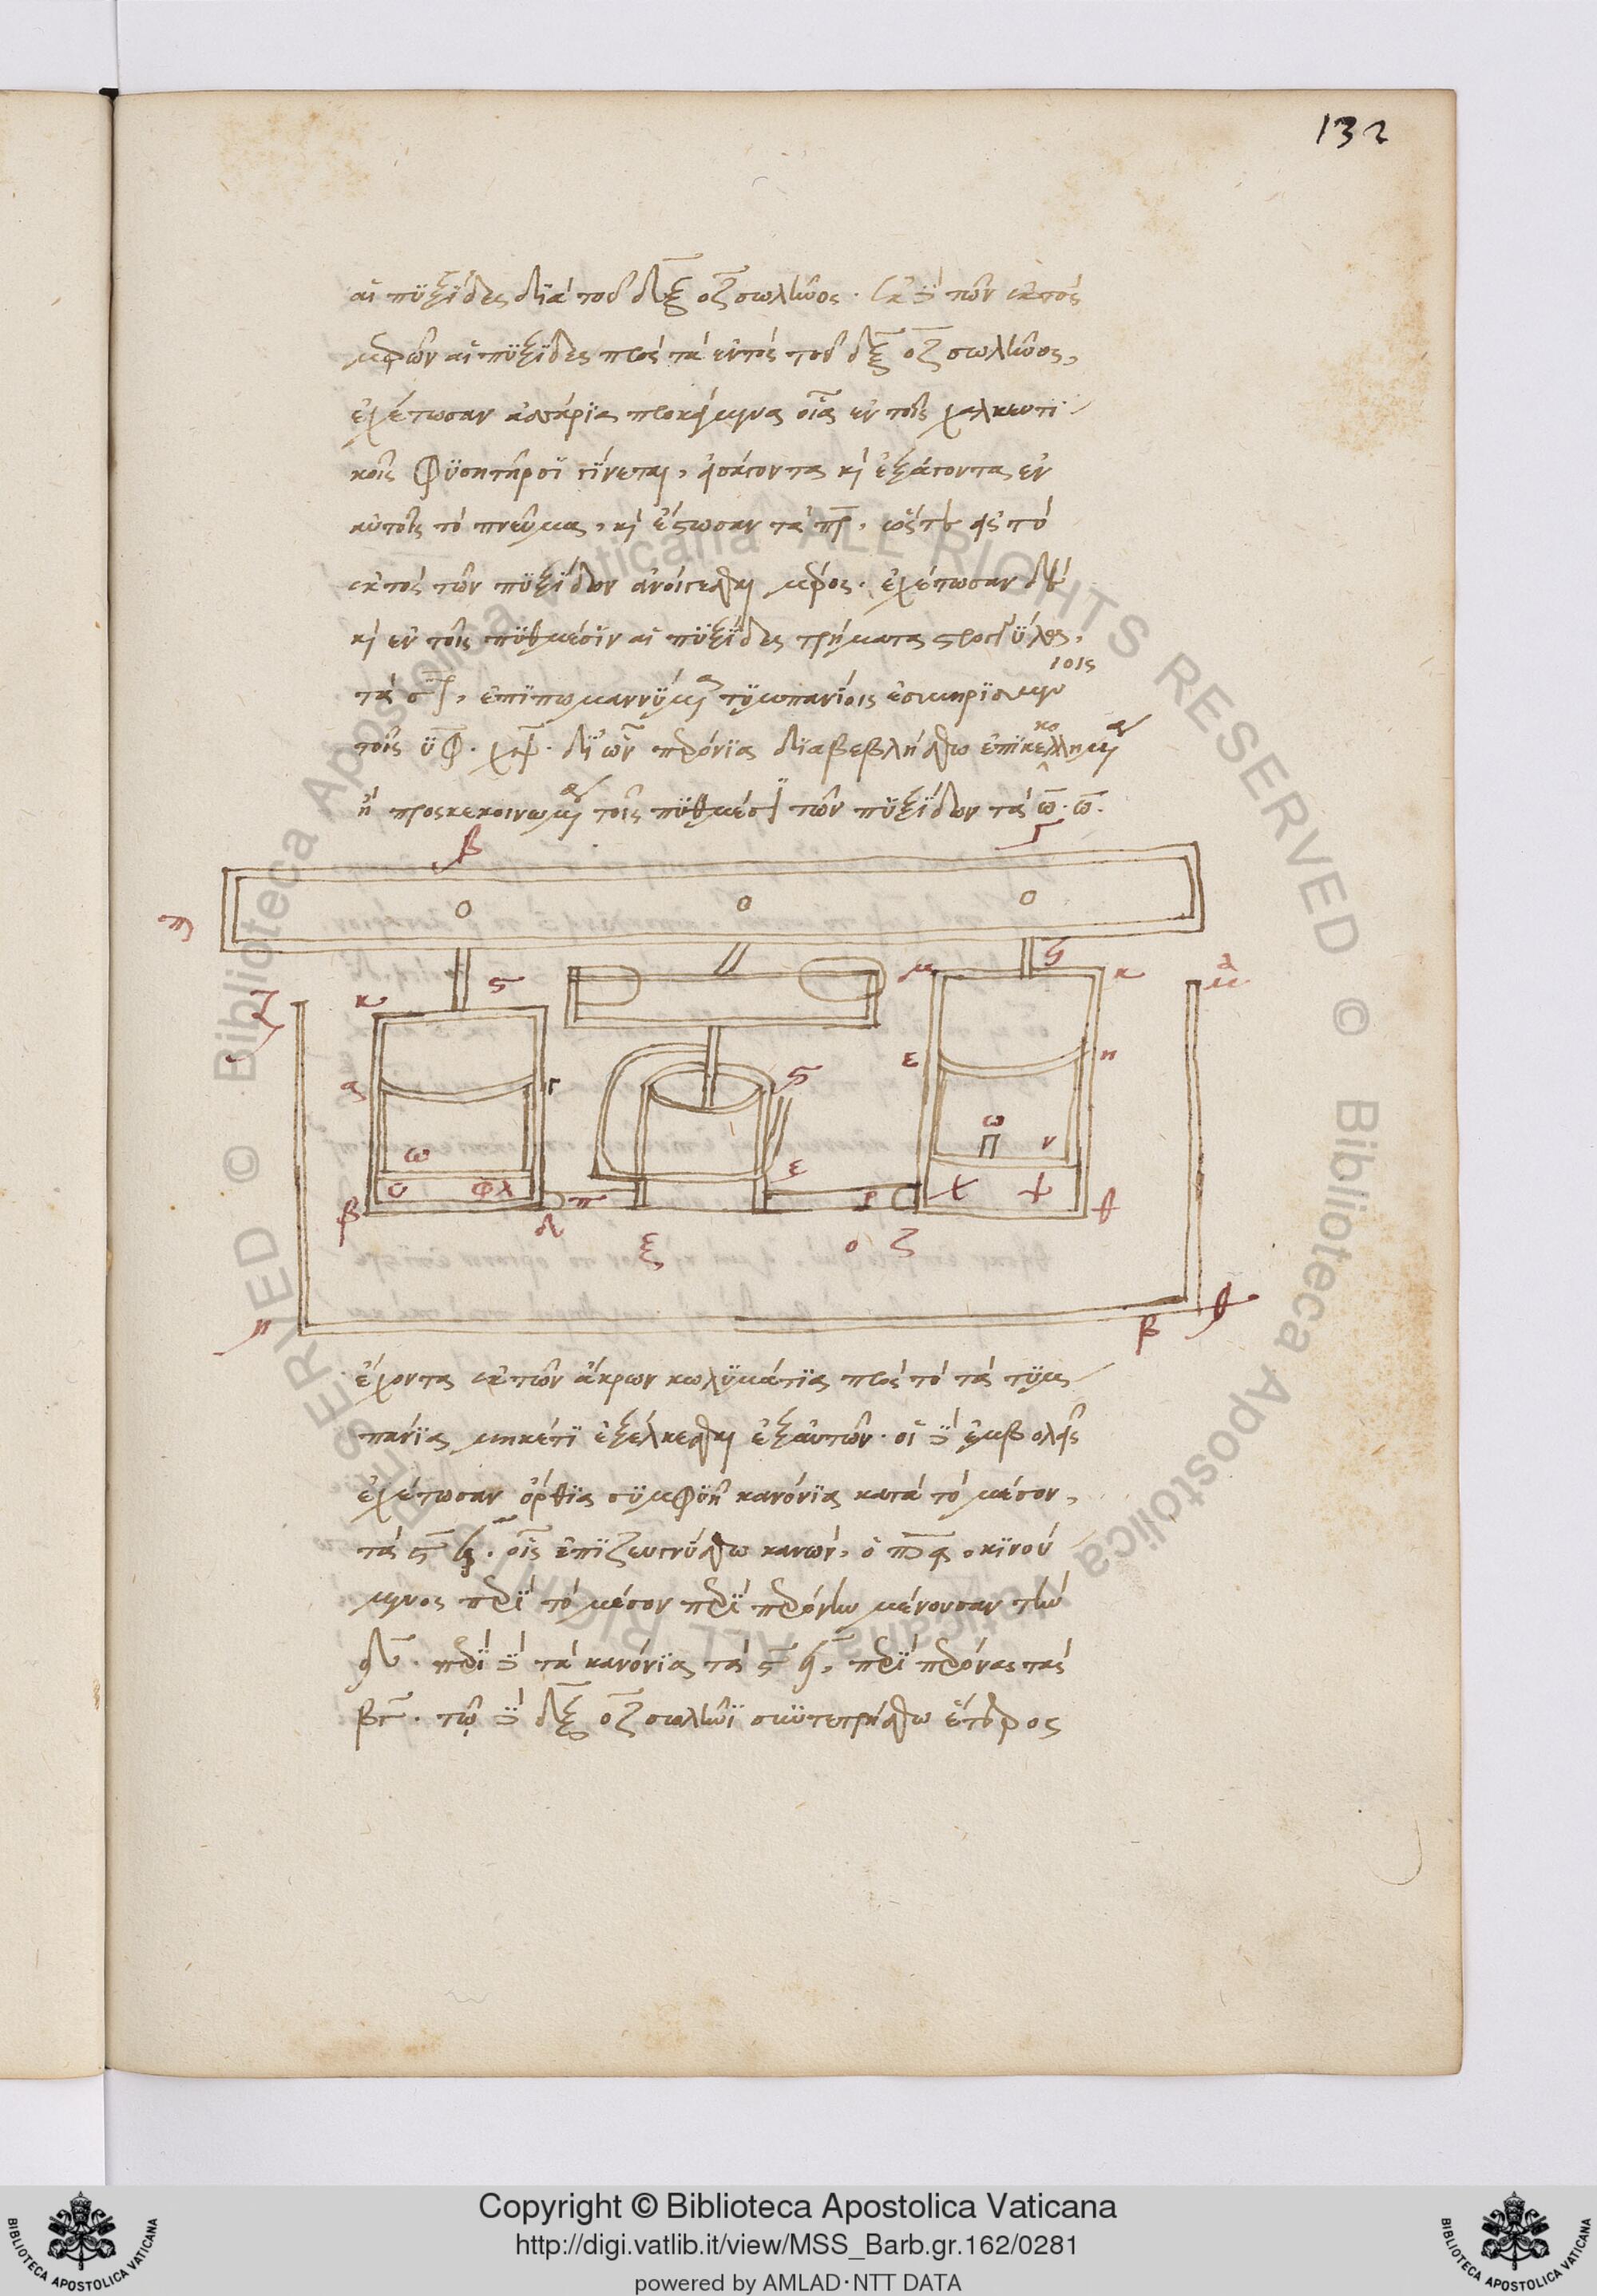 132
αἱ πυξίδες διὰ τοῦ δξοζ σωλῆνος. ἐκ δὲ τῶν ἐκτὸς
μερῶν αἱ πυξίδες πρὸς τὰ ἐντὸς τοῦ δξ οζ σωλῆνος,
ἐχέτωσαν ἀσσάρια προκείμενα οἷα ἐν τοῖς χαλκευτι
κοῖς φυσητῆροϊ γίνεται, εἰσάγοντα καὶ ἐξάγοντα ἐν
αὐτοῖς τὸ πνεῦμα, καὶ ἔστωσαν τὰ πρ, ὥστε εἰς τὸ
ἐκτὸς τῶν πυξίδων ἀνοίγεσθαι μέρος. ἐχέτωσαν δὲ
καὶ ἐν τοῖς πυθμέσιν αἱ πυξίδες τρήματα στρογγύλα,
τὰ στ, ἐπιπωμαννύμενα τυμπανίοις ἐσμηρισμένοις
τοῖς υφ. χψ. δι' ὧν περόνια διαβεβλήσθω ἐπικεκολλημένα
ἢ προσκεκοινωμένα τοῖς πυθμέσι τῶν πυξίδων τὰ ω. ω.
β Γ
π
ς ϛ
ζ κ μ κ α μ
α Γ ς ε η
ω ω Π ν
υ φχ ε χ ψ
β δ π ξ ρ ο ζ θ
η β θ
ἔχοντα ἐκ τῶν ἄκρων κωλυμάτια πρὸς τὸ τὰ τυμ
πάνια μηκέτι ἐξέλκεσθαι ἐξ αὐτῶν. οἱ δὲ ἐμβολεῖς
ἐχέτωσαν ὄρθια συμφυῆ κανόνια κατὰ τὸ μέσον,
τὰ ς ϟ. οἷς ἐπιζευγνύσθω κανὼν, ὁ ϡα, κινού
μενος περὶ τὸ μέσον περὶ περόνην μένουσαν τὴν
δ. περὶ δὲ τὰ κανόνια τὰ ς ϟ, περὶ περόνας τὰς
βγ. τῷ δὲ δξ οζ σωλῆνι συντετρήσθω ἕτερος
Copyright © Biblioteca Apostolica Vaticana
http://digi.vatlib.it/view/MSS_Barb.gr.162/0281
powered by AMLAD·NTT DATA
BIBLIOTECA APOSTOLICA VATICANA
BIBLIOTECA APOSTOLICA VATICANA
© Biblioteca Apostolica Vaticana ALL RIGHTS RESERVED © Biblioteca Apostolica Vaticana ALL RIGHTS RESERVED